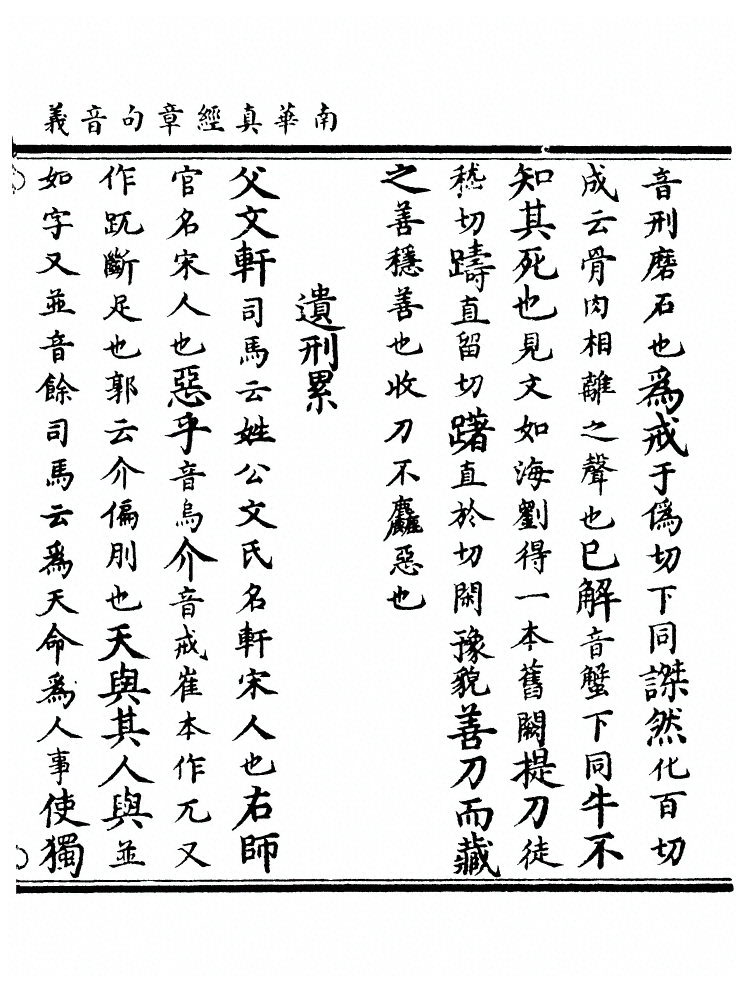 南華真經章句音義
音刑磨石也為戒于偽切下同謋然化百切
成云骨肉相離之聲也已解音蟹下同牛不
知其死也見文如海劉得一本舊闕提刀徒
嵇切躊直留切躇直於切閑豫貌善刀而藏
之善穩善也收刀不麤惡也
遺刑累
父文軒司馬云姓公文氏名軒宋人也右師
官名宋人也惡乎音烏介音戒崔本作兀又
作趴斷足也郭云介偏刖也天與其人與並
如字又並音餘司馬云為天命為人事使獨